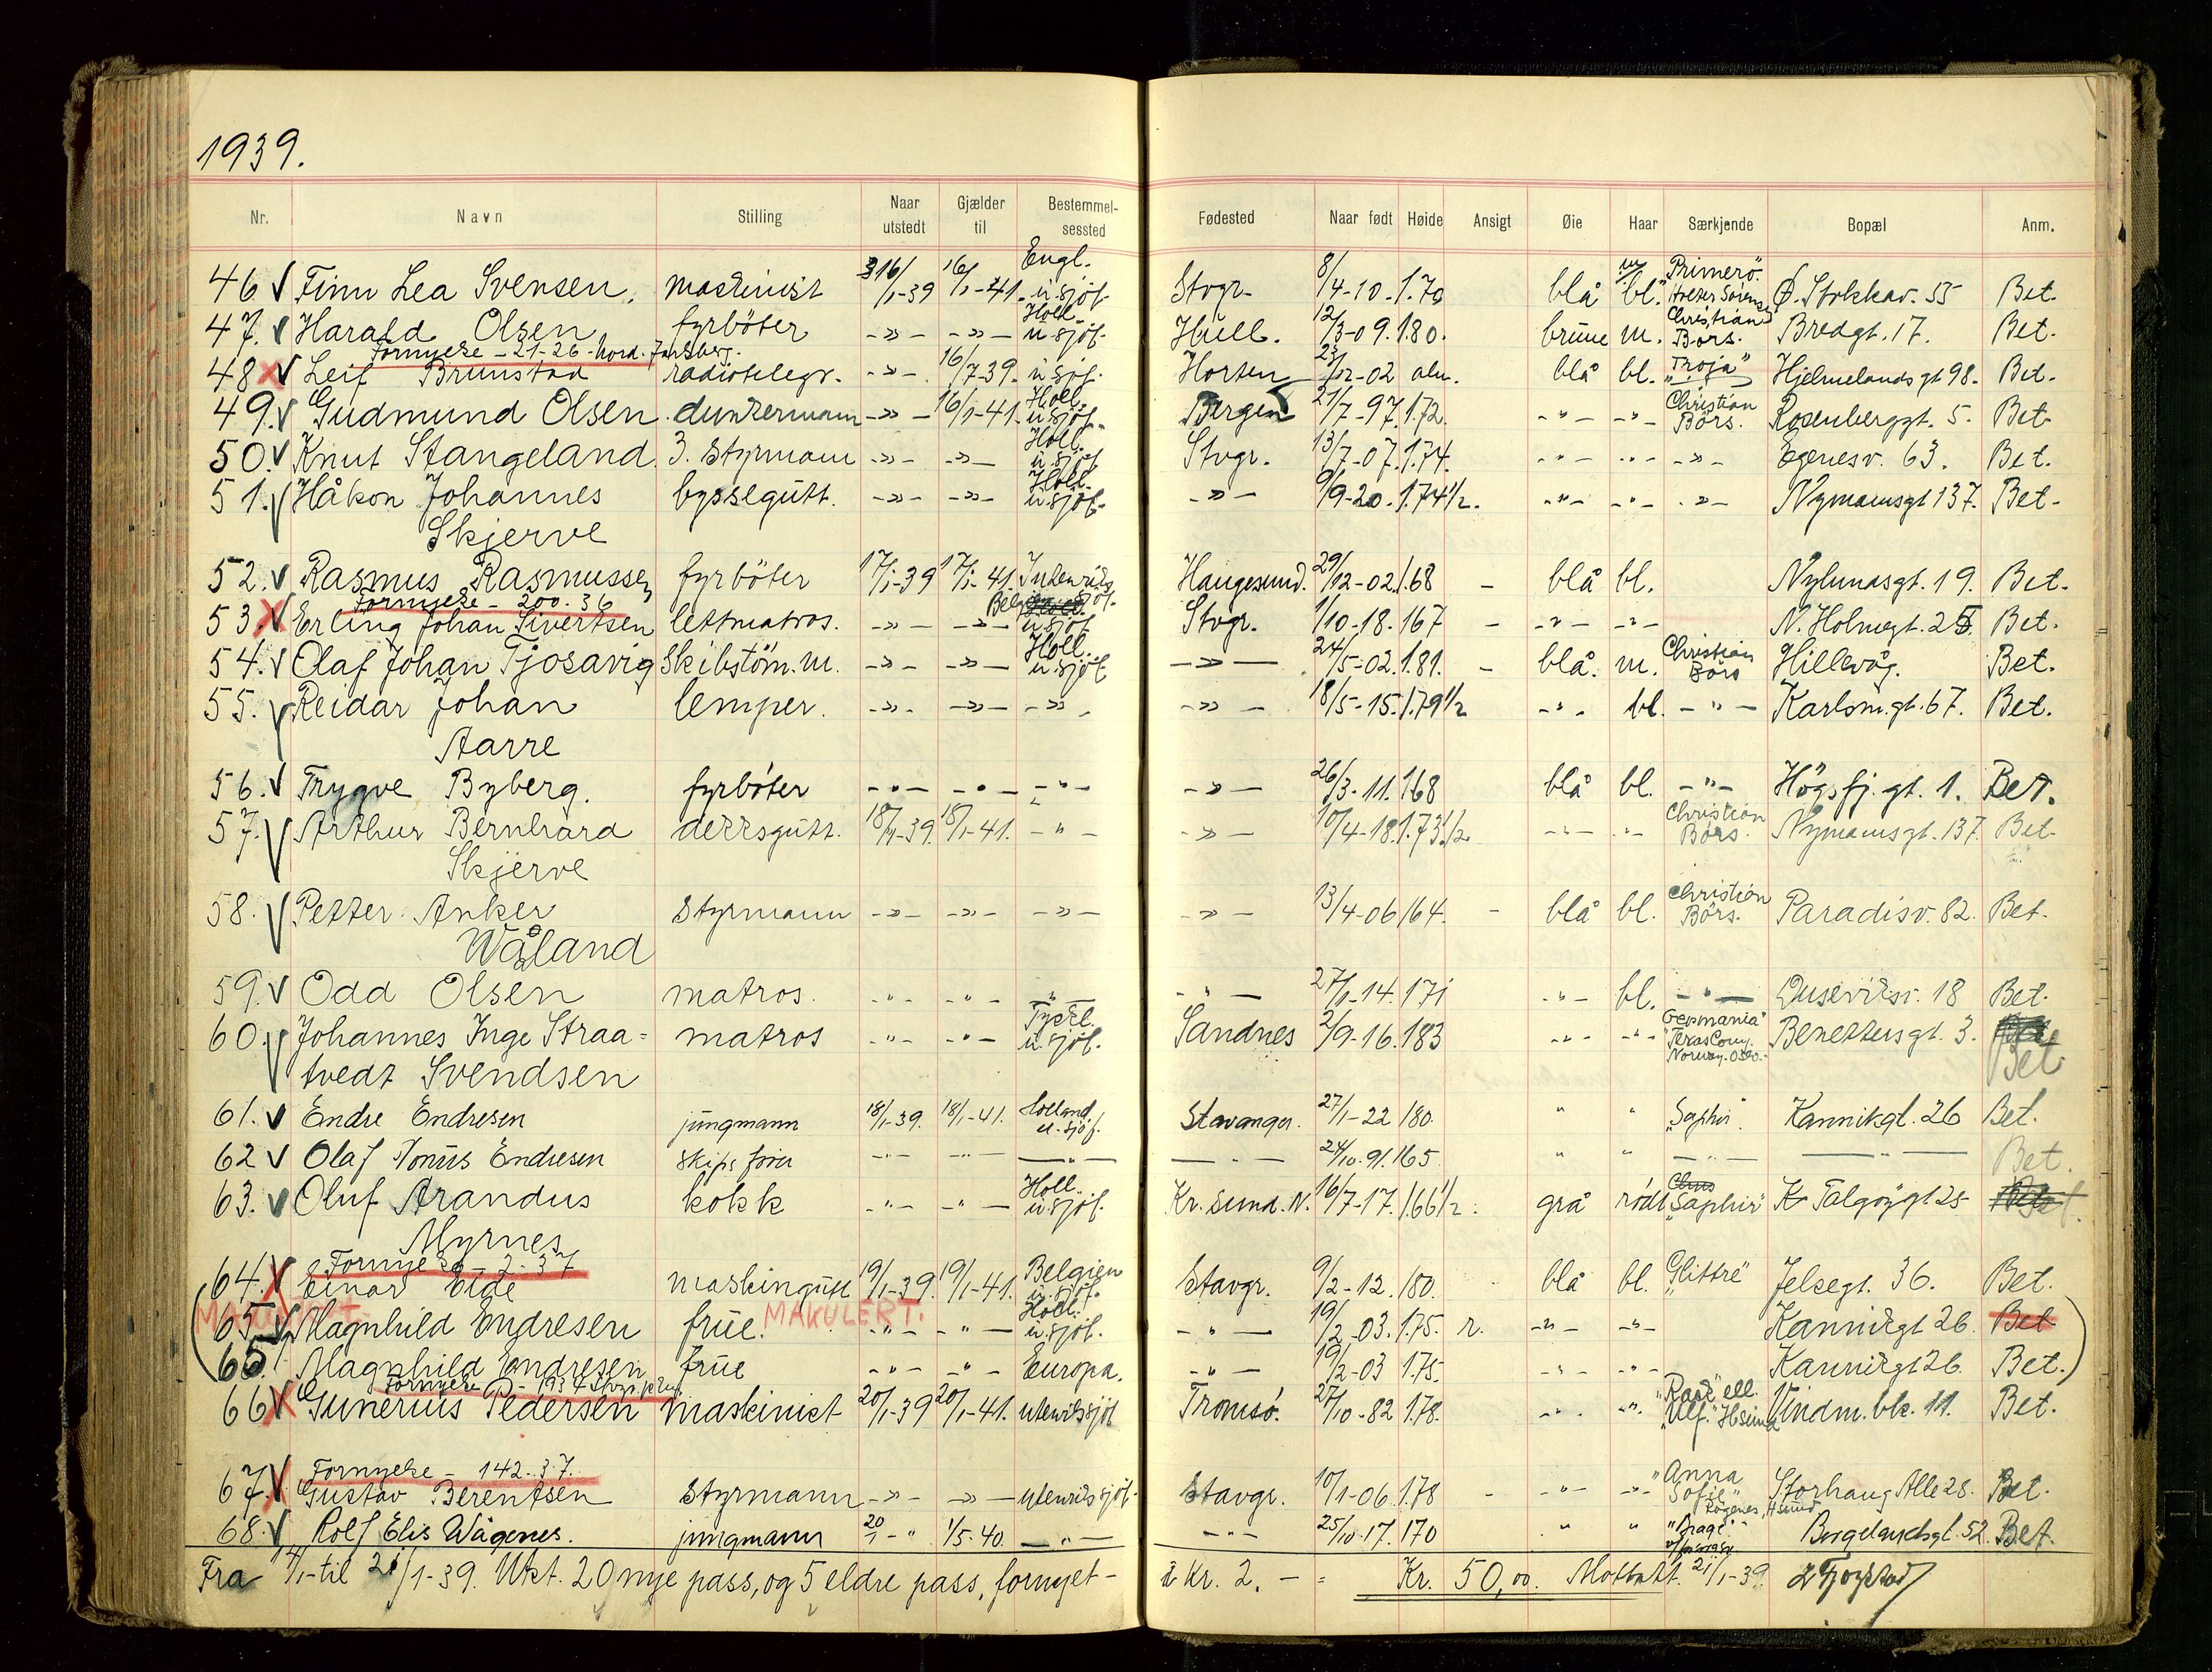 1939.
Nr. Navn Stilling Naar utstedt Gjælder til Bestemmel-sessted Fødested Naar født Høide Ansigt Øie Haar Særkjende Bopæl Anm.
46 √ Finn Lea Svensen. maskinist 16/1-39 16/1-41. Engl. u. sjöf. Stvgr. 8/4-10. 1.70 blå bl. Primero Ö. Stokkav. 55 Bet.
47. √ Harald Olsen fyrböter -»- -»- Holl. u. sjöf. Hull. 12/3-09. 180. brune m. Christian Börs. Bredgt. 17. Bet.
Fornyelse - 21-26 - Nord. Jarlsberg.
48 X √ Leif Brunstad radiotelegr. -»- 16/7-39. u. sjöf. Horten 23/12-02 alm. blå bl. "Troja" Hjelmelandsgt 98. Bet.
49. √ Gudmund Olsen dunkermann -»- 16/1-41. Holl. u. sjöf. Bergen 21/7-97. 1.72. -"- -"- Christian Börs. Rosenberggt. 5. Bet.
50. √ Knut Stangeland. 3. styrmann -»- -»- Holl. u. sjöf. Stvgr. 13/7-07. 1.74. -"- -"- -»- Egenesv. 63. Bet.
51. √ Håkon Johannes byssegutt. -»- -»- Holl. u. sjöf. -»- 9/9-20. 1.74½. -"- -"- -»- Nymannsgt 137. Bet.
Skjerve
52. √ Rasmus Rasmussen fyrböter 17/1-39 17/1-41. Utenriks sjöf. Haugesund. 29/12-02. 168 - blå bl. Nylundsgt. 19. Bet.
Fornyelse - 200-36
53. X √ Erling Johan Sivertsen lettmatros. -»- -»- Belg. u. sjöf. Stvgr. 1/10-18. 167 - -"- -"- N. Holmegt. 25. Bet.
54. √ Olaf Johan Tjosavig Skibstöm.m. -»- -»- Holl. u. sjöf. -»- 24/5-02. 1.81. - blå. m. Christian Börs Hillevåg. Bet.
55. √ Reidar Johan lemper. -»- -»- -»- -»- 18/5-15. 1.79½ -"- bl. -"- Karlsm.gt. 67. Bet.
Aarre
56. √ Trygve Byberg. fyrböter -"- -"- -"- -»- 26/3-11. 168 blå bl. -"- Högsfj. gt. 1. Bet.
57. √ Arthur Bernhard dekksgutt. 18/1-39. 18/1-41. -"- -»- 10/4-18. 1.73½ -"- -"- Christian Börs. Nymannsgt. 137. Bet.
Skjerve
58. √ Petter Anker Styrmann -»- -»- -»- -»- 13/4-06 164. - blå bl. Christian Börs. Paradisv. 82. Bet.
Wåland
59. √ Odd Olsen matros. -"- -"- -"- -"- 27/1-14. 171 -"- bl. -"- Dusevikv. 18 Bet.
60. √ Johannes Inge Straa= matros -"- -"- Tyskl. u. sjöf. Sandnes 2/9-16. 183 -"- -"- Germania" "Texas Comp. Norway. Oslo.- Benettersgt. 3. Bet
tvedt Svendsen
61. √ Endre Endresen jungmann 18/1-39. 18/1-41. Holland u. sjöf. Stavanger. 27/1-22 180. " " "Saphir". Kannikgt. 26 Bet.
62 √ Olaf Jonius Endresen skipsförer -"- -"- -"- -"- 24/10-91. 165. " " -"- -"- Bet.
63. √ Oluf Arandus kokk -"- -"- Holl. u. sjöf. Kr. sund. N. 16/7-17. 1.66½. grå rödt "Saphir" K Talgöygt 25 Bet.
Myrnes
Fornyelse - 2-37
64. X Einar Eide maskingutt 19/1-39. 19/1-41. Belgien u. sjöf. Stavgr. 9/2-12. 180. blå bl. "Glittre" Jelsegt. 36. Bet.
65 √ Magnhild Endresen frue. MAKULERT. -"- -"- Holl. u. sjöf. -"- 19/2-03. 1.75. r. -"- -"- Kannikgt 26. Bet
65. Magnhild Endresen frue -"- -"- Europa. -"- 19/2-03 1.75. -"- -"- Kannikgt 26. Bet.)
66 X Gunerius Pedersen maskinist 20/1-39 20/1-41. utenrikssjöf Tromsö. 27/10-82 1.78. -"- -"- ell. "Ulf." Hsund Vindm.bk. 11. Bet.
Fornyelse - 142-37.
67. X √ Gustav Berentsen Styrmann -»- -»- utenriks sjöf. Stavgr. 10/1-06. 1.78 - -"- -"- "Anna Sofie" Hsund Storhaug Alle 28. Bet.
68. √ Rolf Elis Wågenes. jungmann 20/1-" 1/5-40. -"- -"- 25/10-17. 170 " " "Brage" Bergelandsgt. 52. Bet.
Fra 14/1-til 21/1-39. Utst. 20 nye pass, og 5 eldre pass, fornyet- à Kr. 2.- = Kr. 50,00. Mottatt. 21/1-39.